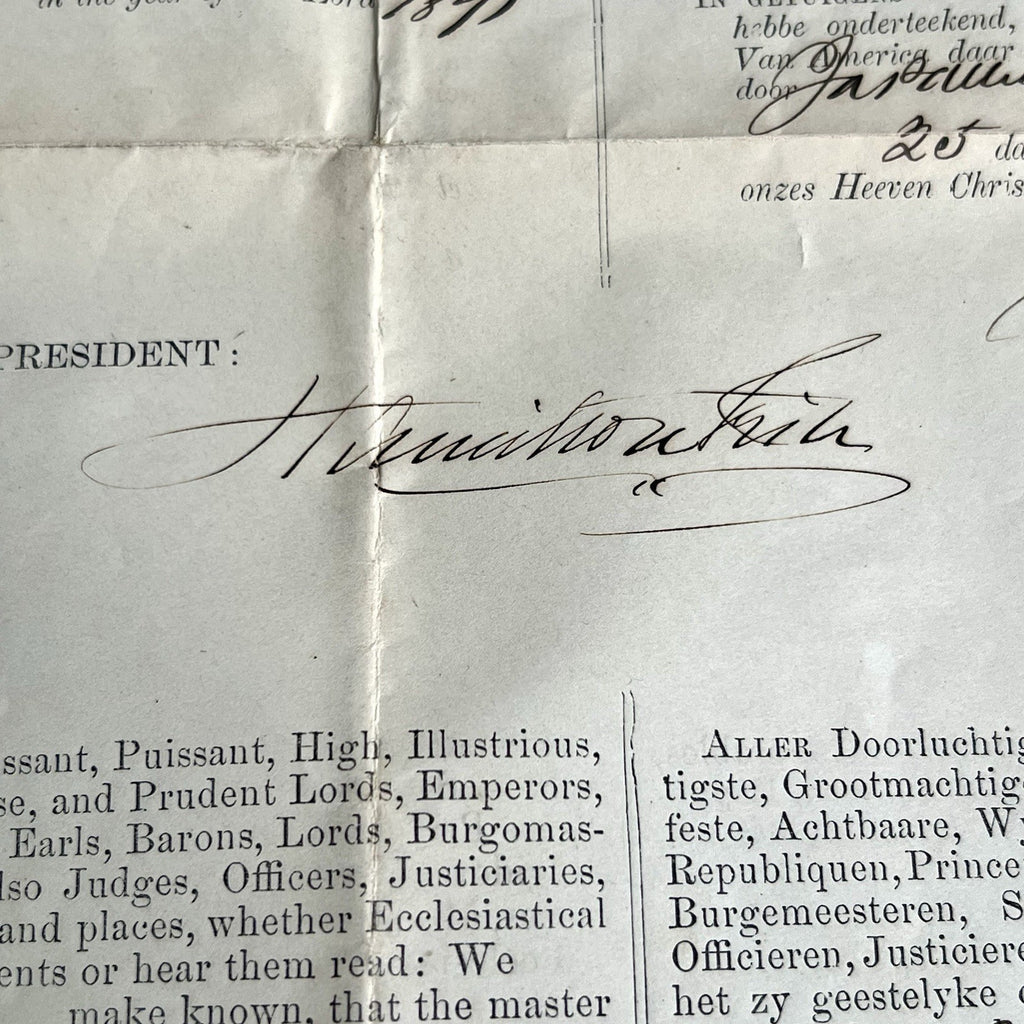 in the year of Lord 1871
IN GETUIGENIS
hebbe onderteekend,
Van America daar
door
25 da
onzes Heeven Chris
PRESIDENT:
Hamilton Fish
ssant, Puissant, High, Illustrious,
se, and Prudent Lords, Emperors,
Earls, Barons, Lords, Burgomas-
lso Judges, Officers, Justiciaries,
and places, whether Ecclesiastical
ents or hear them read: We
make known, that the master
ALLER Doorluchtig
tigste, Grootmachtig
feste, Achtbaare, Wy
Republiquen, Prince
Burgemeesteren, S
Officieren, Justiciere
het zy geestelyke